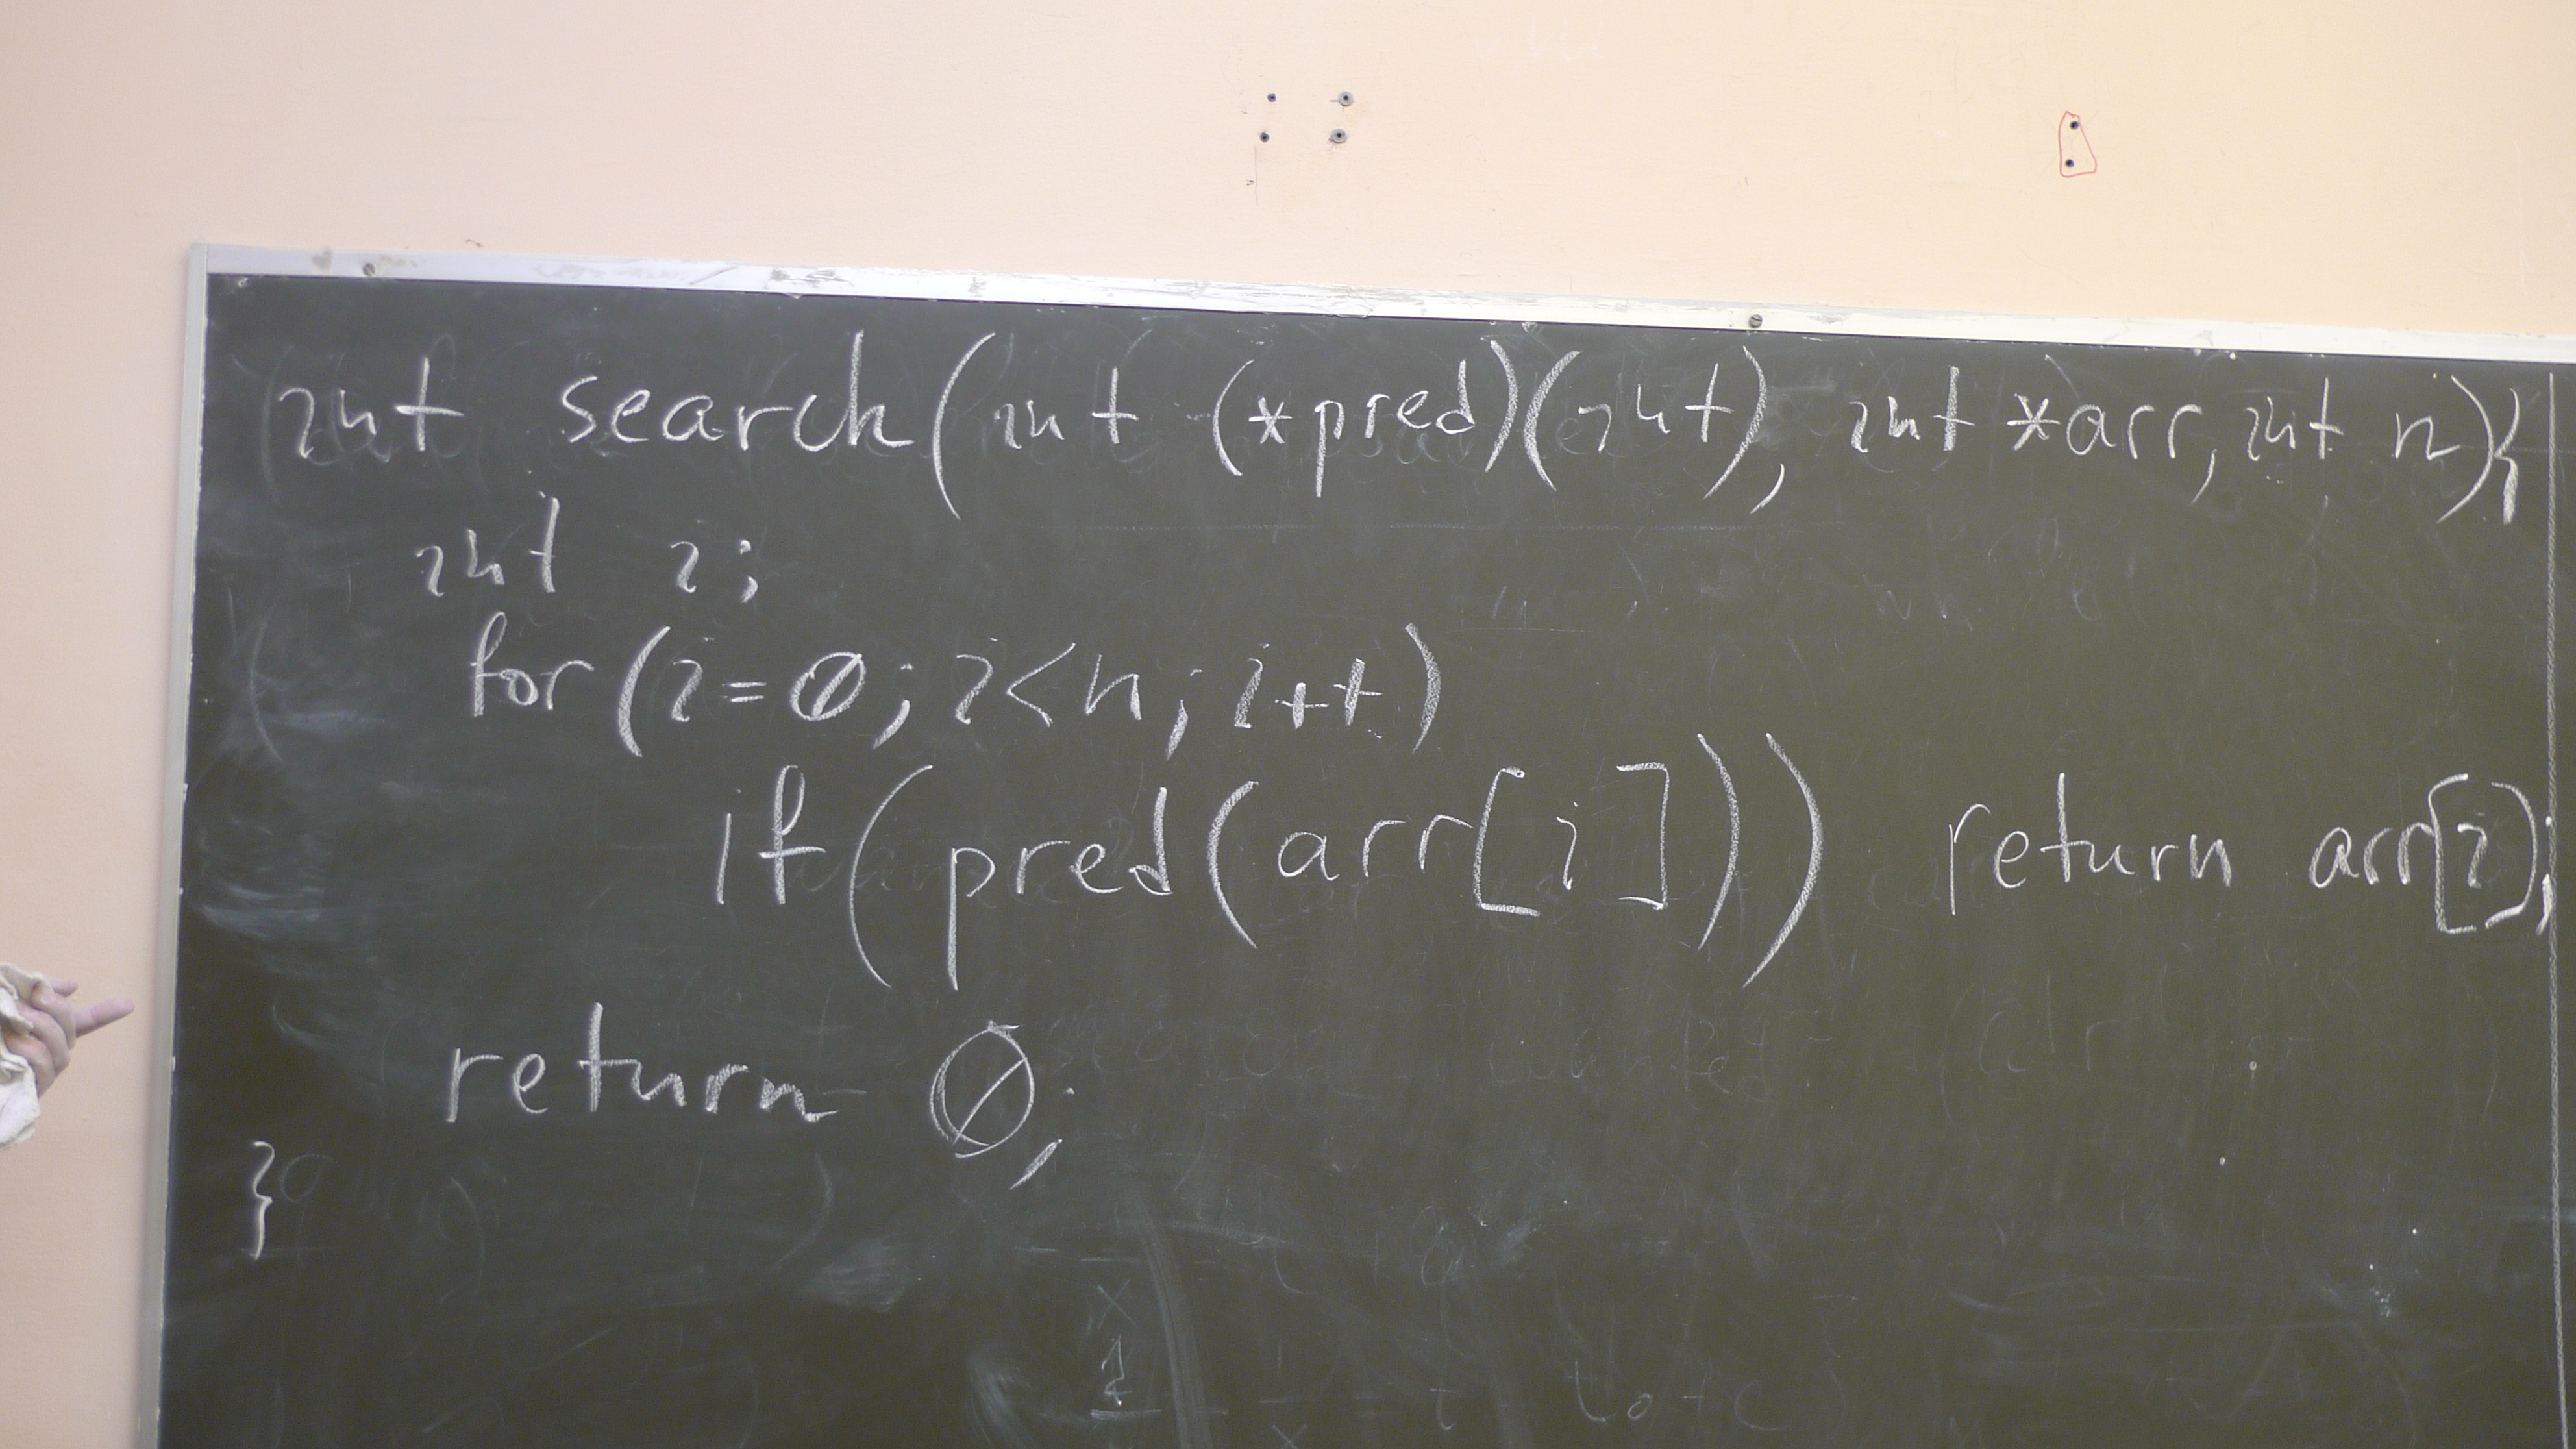 int search(int (*pred)(int), int *arr, int n){
int i;
for (i=0; i<n; i++)
if(pred(arr[i])) return arr[i];
return 0;
}